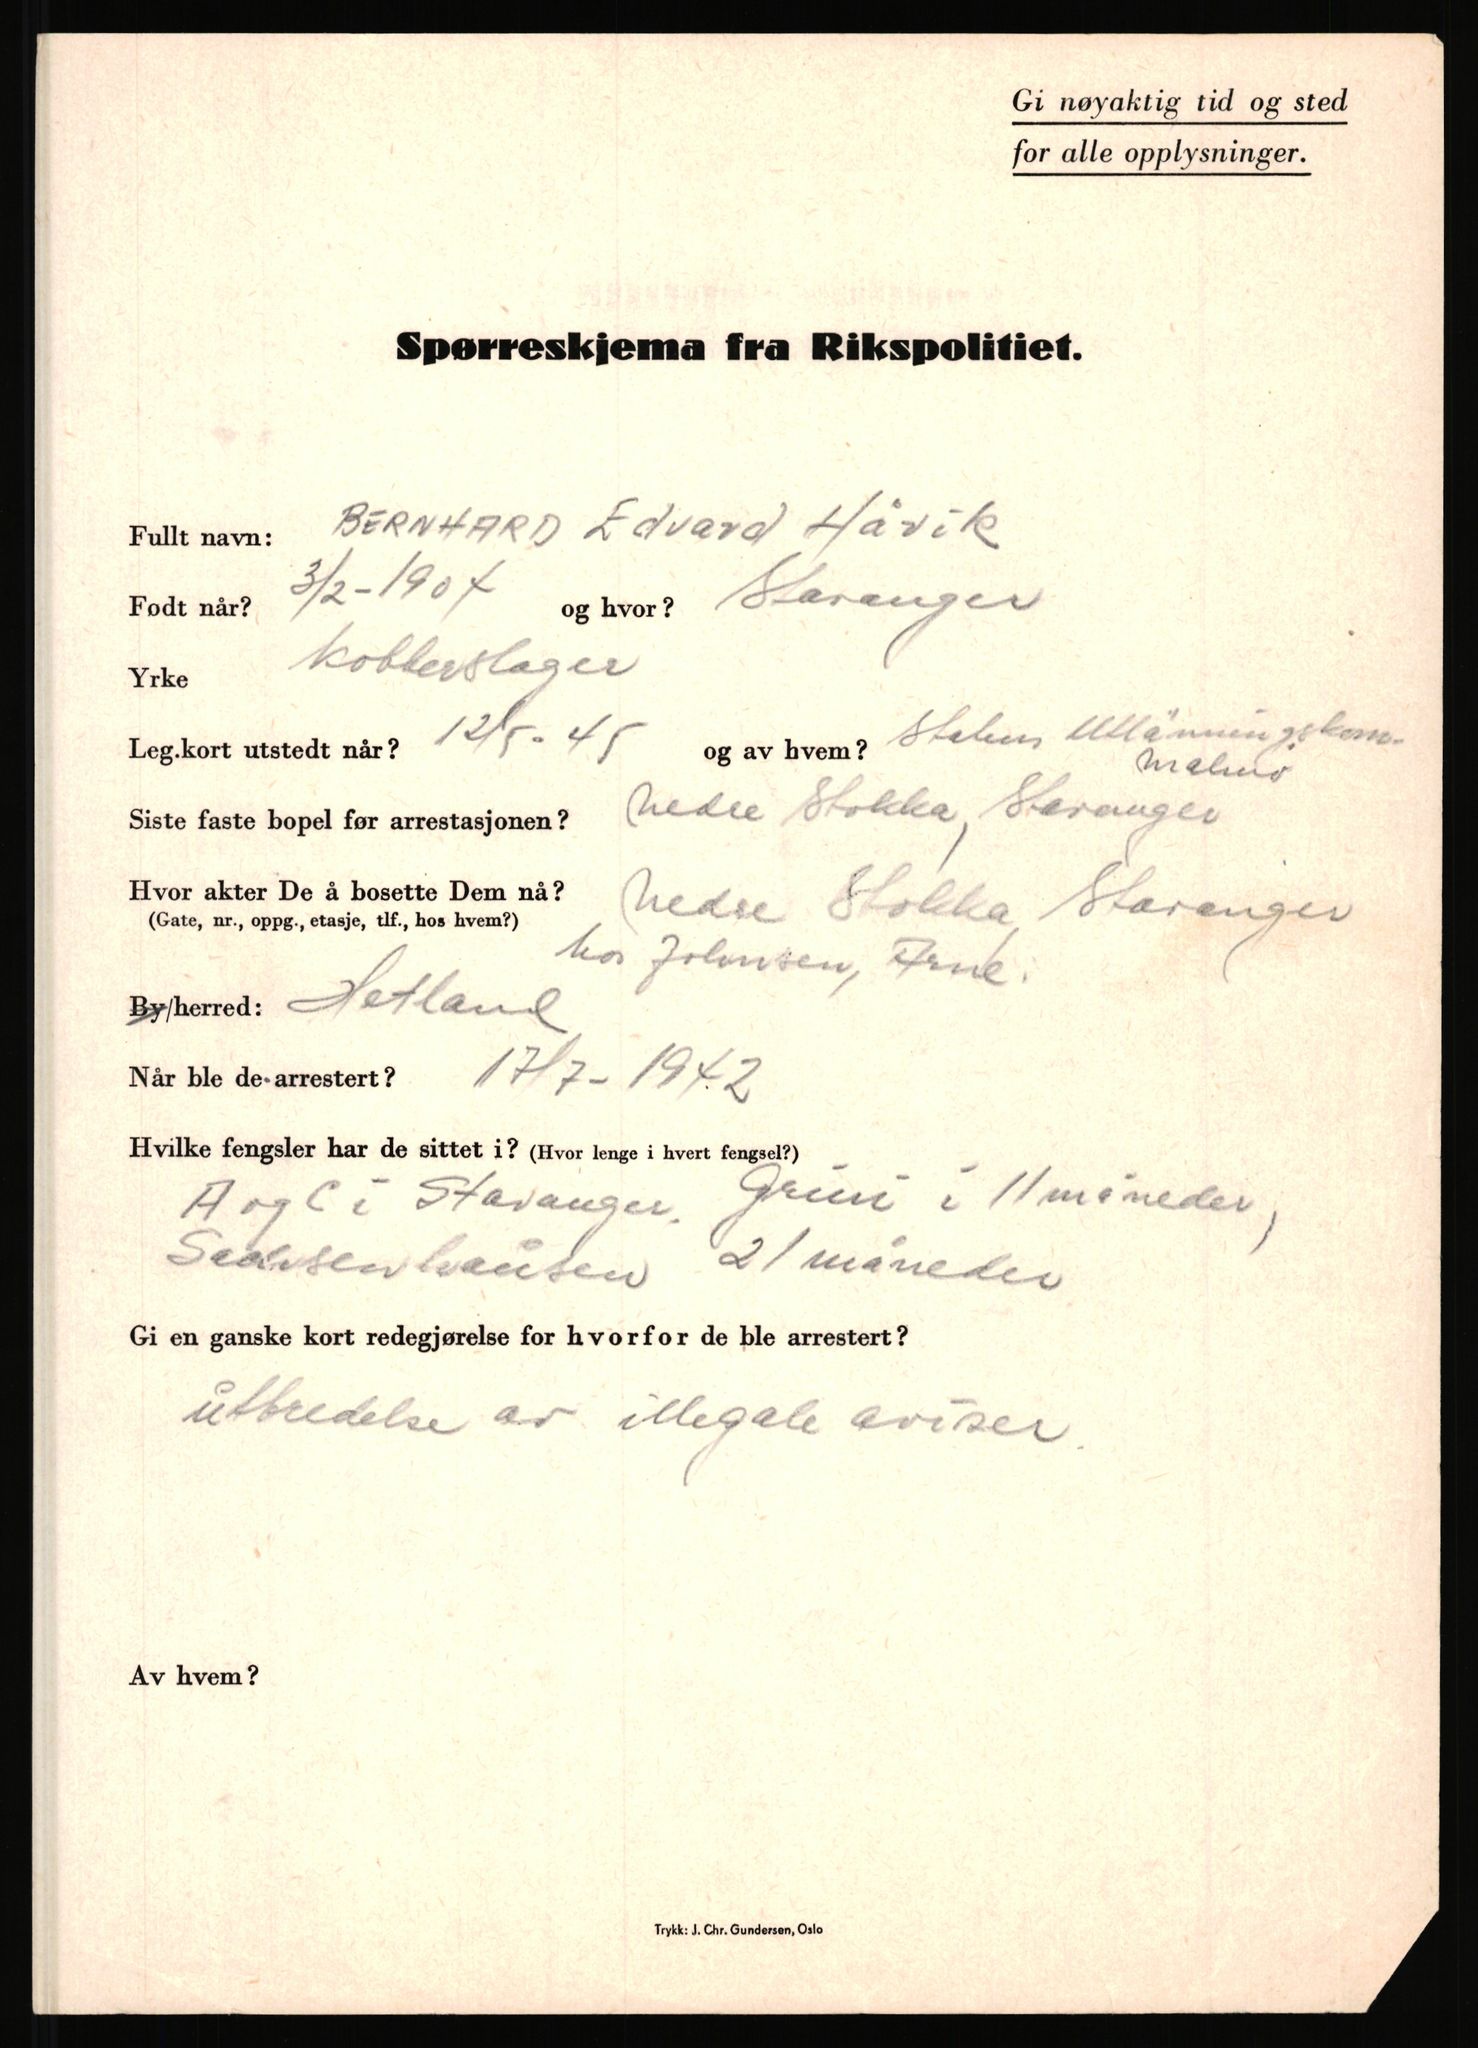 Gi nøyaktig tid og sted
for alle opplysninger.
Spørreskjema fra Rikspolitiet.
Fullt navn: BERNHARD Edvard Håvik
Født når? 3/2-1904 og hvor? Stavanger
Yrke kobberslager
Leg.kort utstedt når? 12/5-45 og av hvem? Statens Utlänningskom-
Malmö
Siste faste bopel før arrestasjonen? Nedre Stokka, Stavanger
Hvor akter De å bosette Dem nå? Nedre Stokka, Stavanger
(Gate, nr., oppg., etasje, tlf., hos hvem?) hos Johnsen, Arne.
By/herred: Hetland
Når ble de arrestert? 17/7-1942
Hvilke fengsler har de sittet i? (Hvor lenge i hvert fengsel?)
A og C i Stavanger. Grini i 11 måneder,
Sachsenhausen 21 måneder
Gi en ganske kort redegjørelse for hvorfor de ble arrestert?
utbredelse av illegale aviser.
Av hvem?
Trykk: J. Chr. Gundersen, Oslo